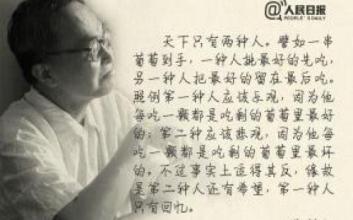 @人民日报
PEOPLE'S DAILY
天下只有两种人。譬如一串
葡萄到手,一种人挑最好的先吃,
另一种人把最好的留在最后吃。
照例第一种人应该乐观,因为他
每吃一颗都是吃剩的葡萄里最好
的;第二种应该悲观,因为他每
吃一颗都是吃剩的葡萄里最坏
的。不过事实上适得其反,缘故
是第二种人还有希望,第一种人
只有回忆。